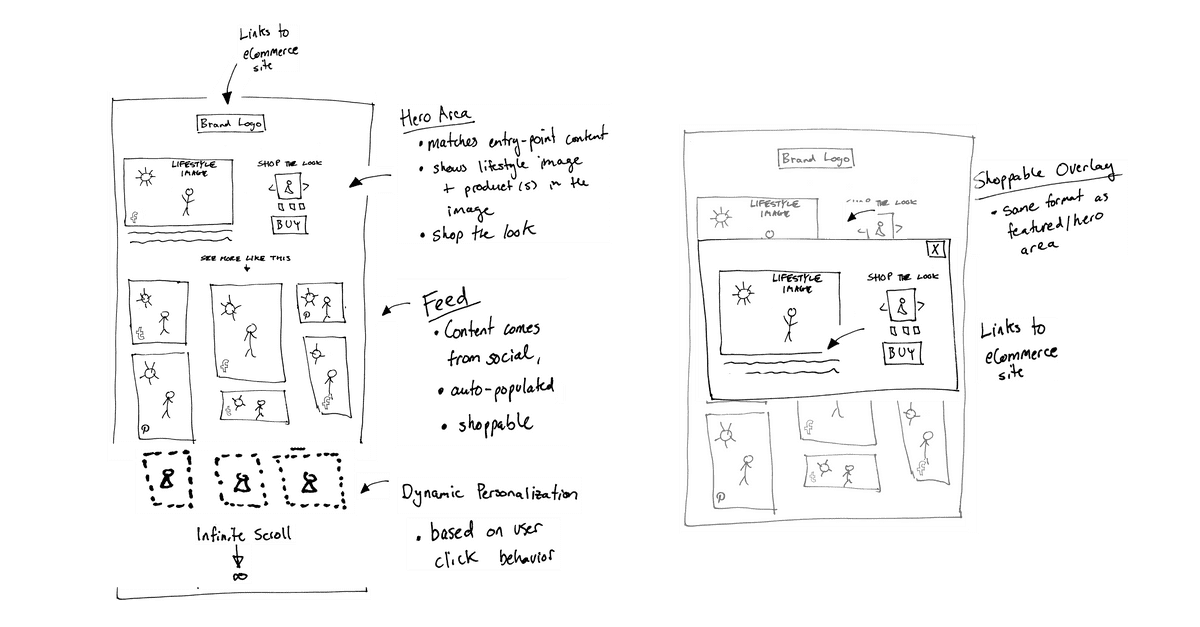 Links to
eCommerce
site
Brand Logo
LIFESTYLE
IMAGE
SHOP THE LOOK
< >
BUY
SEE MORE LIKE THIS
Hero Area
• matches entry-point content
• shows lifestyle image
+ product(s) in the
image
• Shop the look
Feed
• Content comes
from social,
• auto-populated
• shoppable
Dynamic Personalization
• based on user
click behavior
Infinite Scroll
∞
Brand Logo
LIFESTYLE
IMAGE
THE LOOK
X
LIFESTYLE
IMAGE
SHOP THE LOOK
< >
BUY
Shoppable Overlay
• Same format as
featured/hero
area
Links to
eCommerce
site